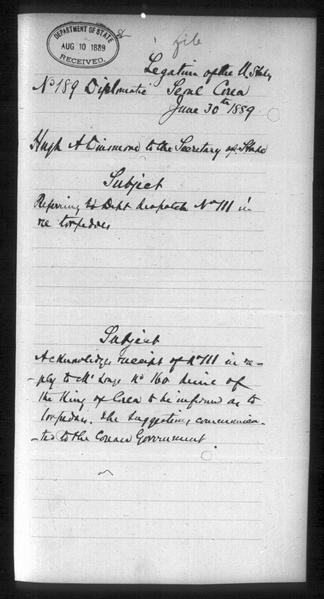 DEPARTMENT OF STATE
AUG 10 1889
RECEIVED.
file
Legation of the U. States
No 189 Diplomatic Seoul Corea
June 30th 1889
Hugh A Dinsmore to the Secretary of State
Subject
Referring to Dept despatch No 111 in
re torpedoes
Subject
Acknowledges receipt of No 111 in re-
ply to Mr Long's No 160 desire of
the King of Corea to be informed as to
torpedoes. The suggestions communica-
-ted to the Corean Government.